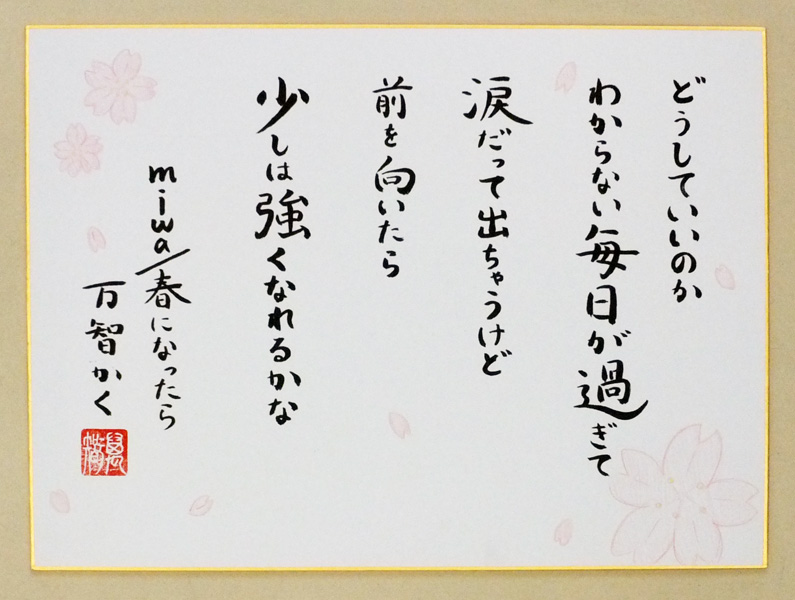 どうしていいのか
わからない毎日が過ぎて
涙だって出ちゃうけど
前を向いたら
少しは強くなれるかな
miwa/春になったら
万智かく